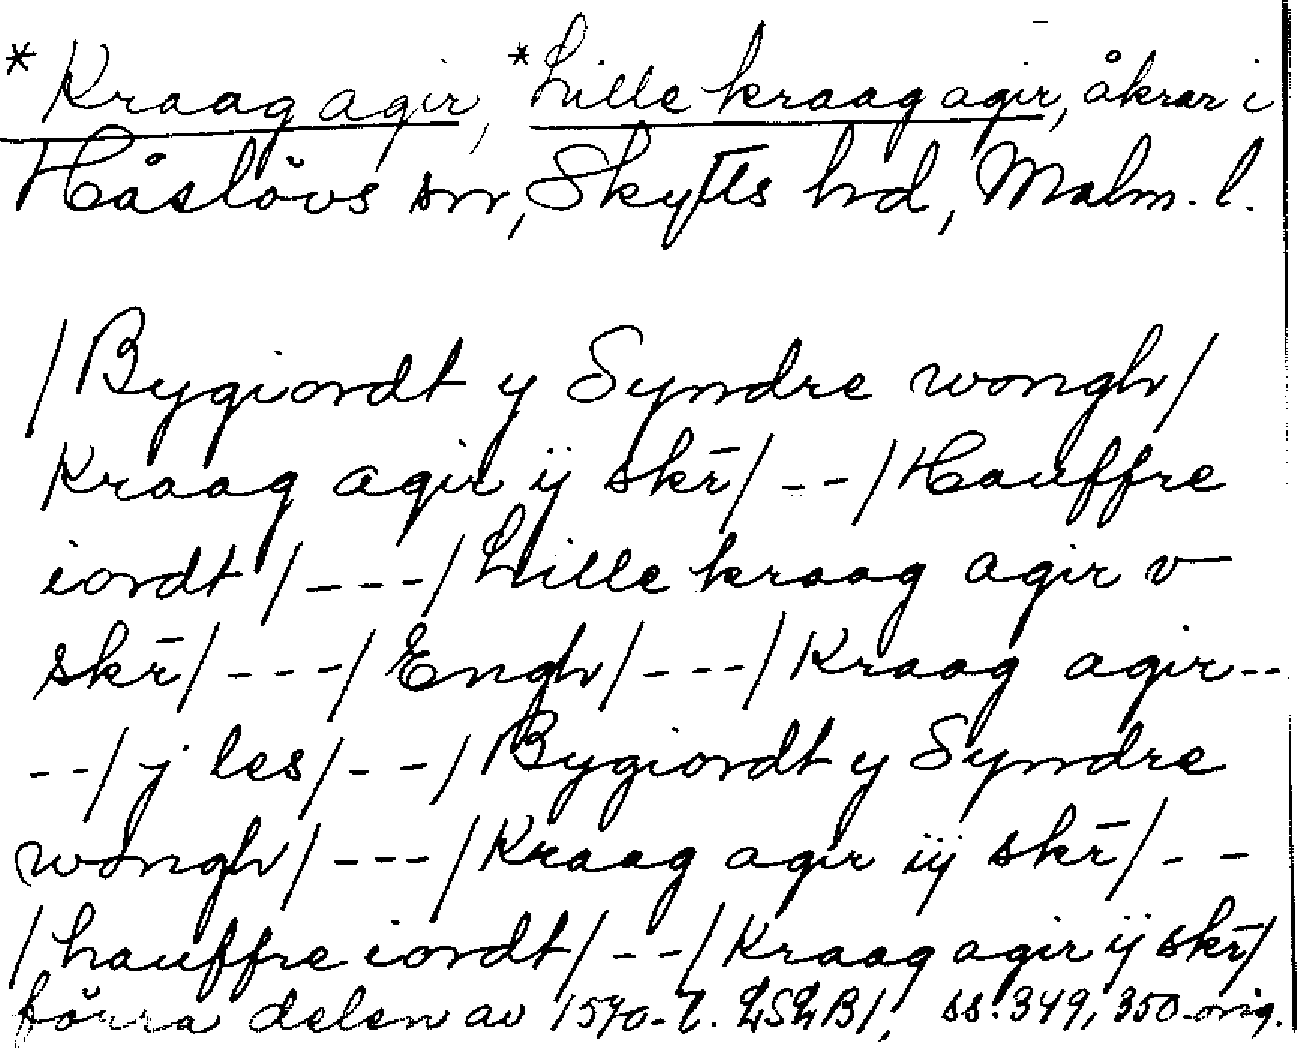 *Kraag agir, *Lille kraag agir, åkrar i
Håslövs sn, Skytts hd, Malm. l.
/Bygiordt y Syndre wongh/
Kraag agir ij skr̄/ -- /Hauffre
iordt/ --- /Lille kraag agir v
skr̄/ --- /Engh/ --- /Kraag agir --
--/ j les/ -- /Bygiordt y Syndre
wongh/ --- /Kraag agir iij skr̄/ --
/hauffre iordt/ -- /Kraag agir ij skr̄/
förra delen av 1570-t. LSLB1, ss. 349, 350 orig.